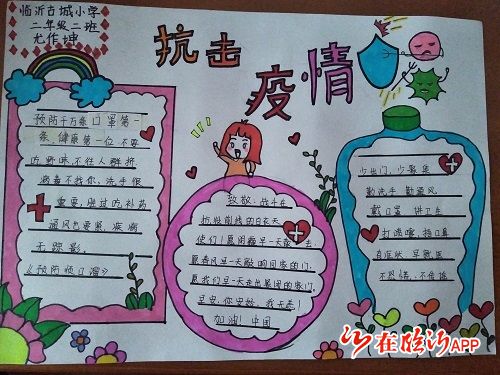 临沂古城小学
二年级二班
尤作坤
抗击
疫情
预防千万条口罩第一
条,健康第一位 不要
吃野味,不往人群挤,
病毒不找你,洗手很
重要,胜过吃补药
通风也要紧,疾病
无踪影,
《预防顺口溜》
致敬:战斗在
抗疫前线的白衣天
使们!愿闭幕早一天
愿春风早一天敲响同家的门,
愿我们早一天走出紧闭的家门,
早安,你安好,我无恙!
加油!中国
少出门,少聚集
勤洗手 勤通风
戴口罩 讲卫生
打喷嚏 捂口鼻
有症状 早就医
不恐慌,不传谣
在临沂APP